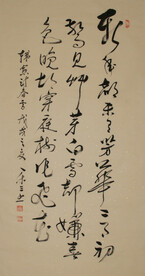 新年都未有芳華二月初
驚見艸芽白雪却嫌春
色晚故穿庭樹作飛花
韓愈詩春雪